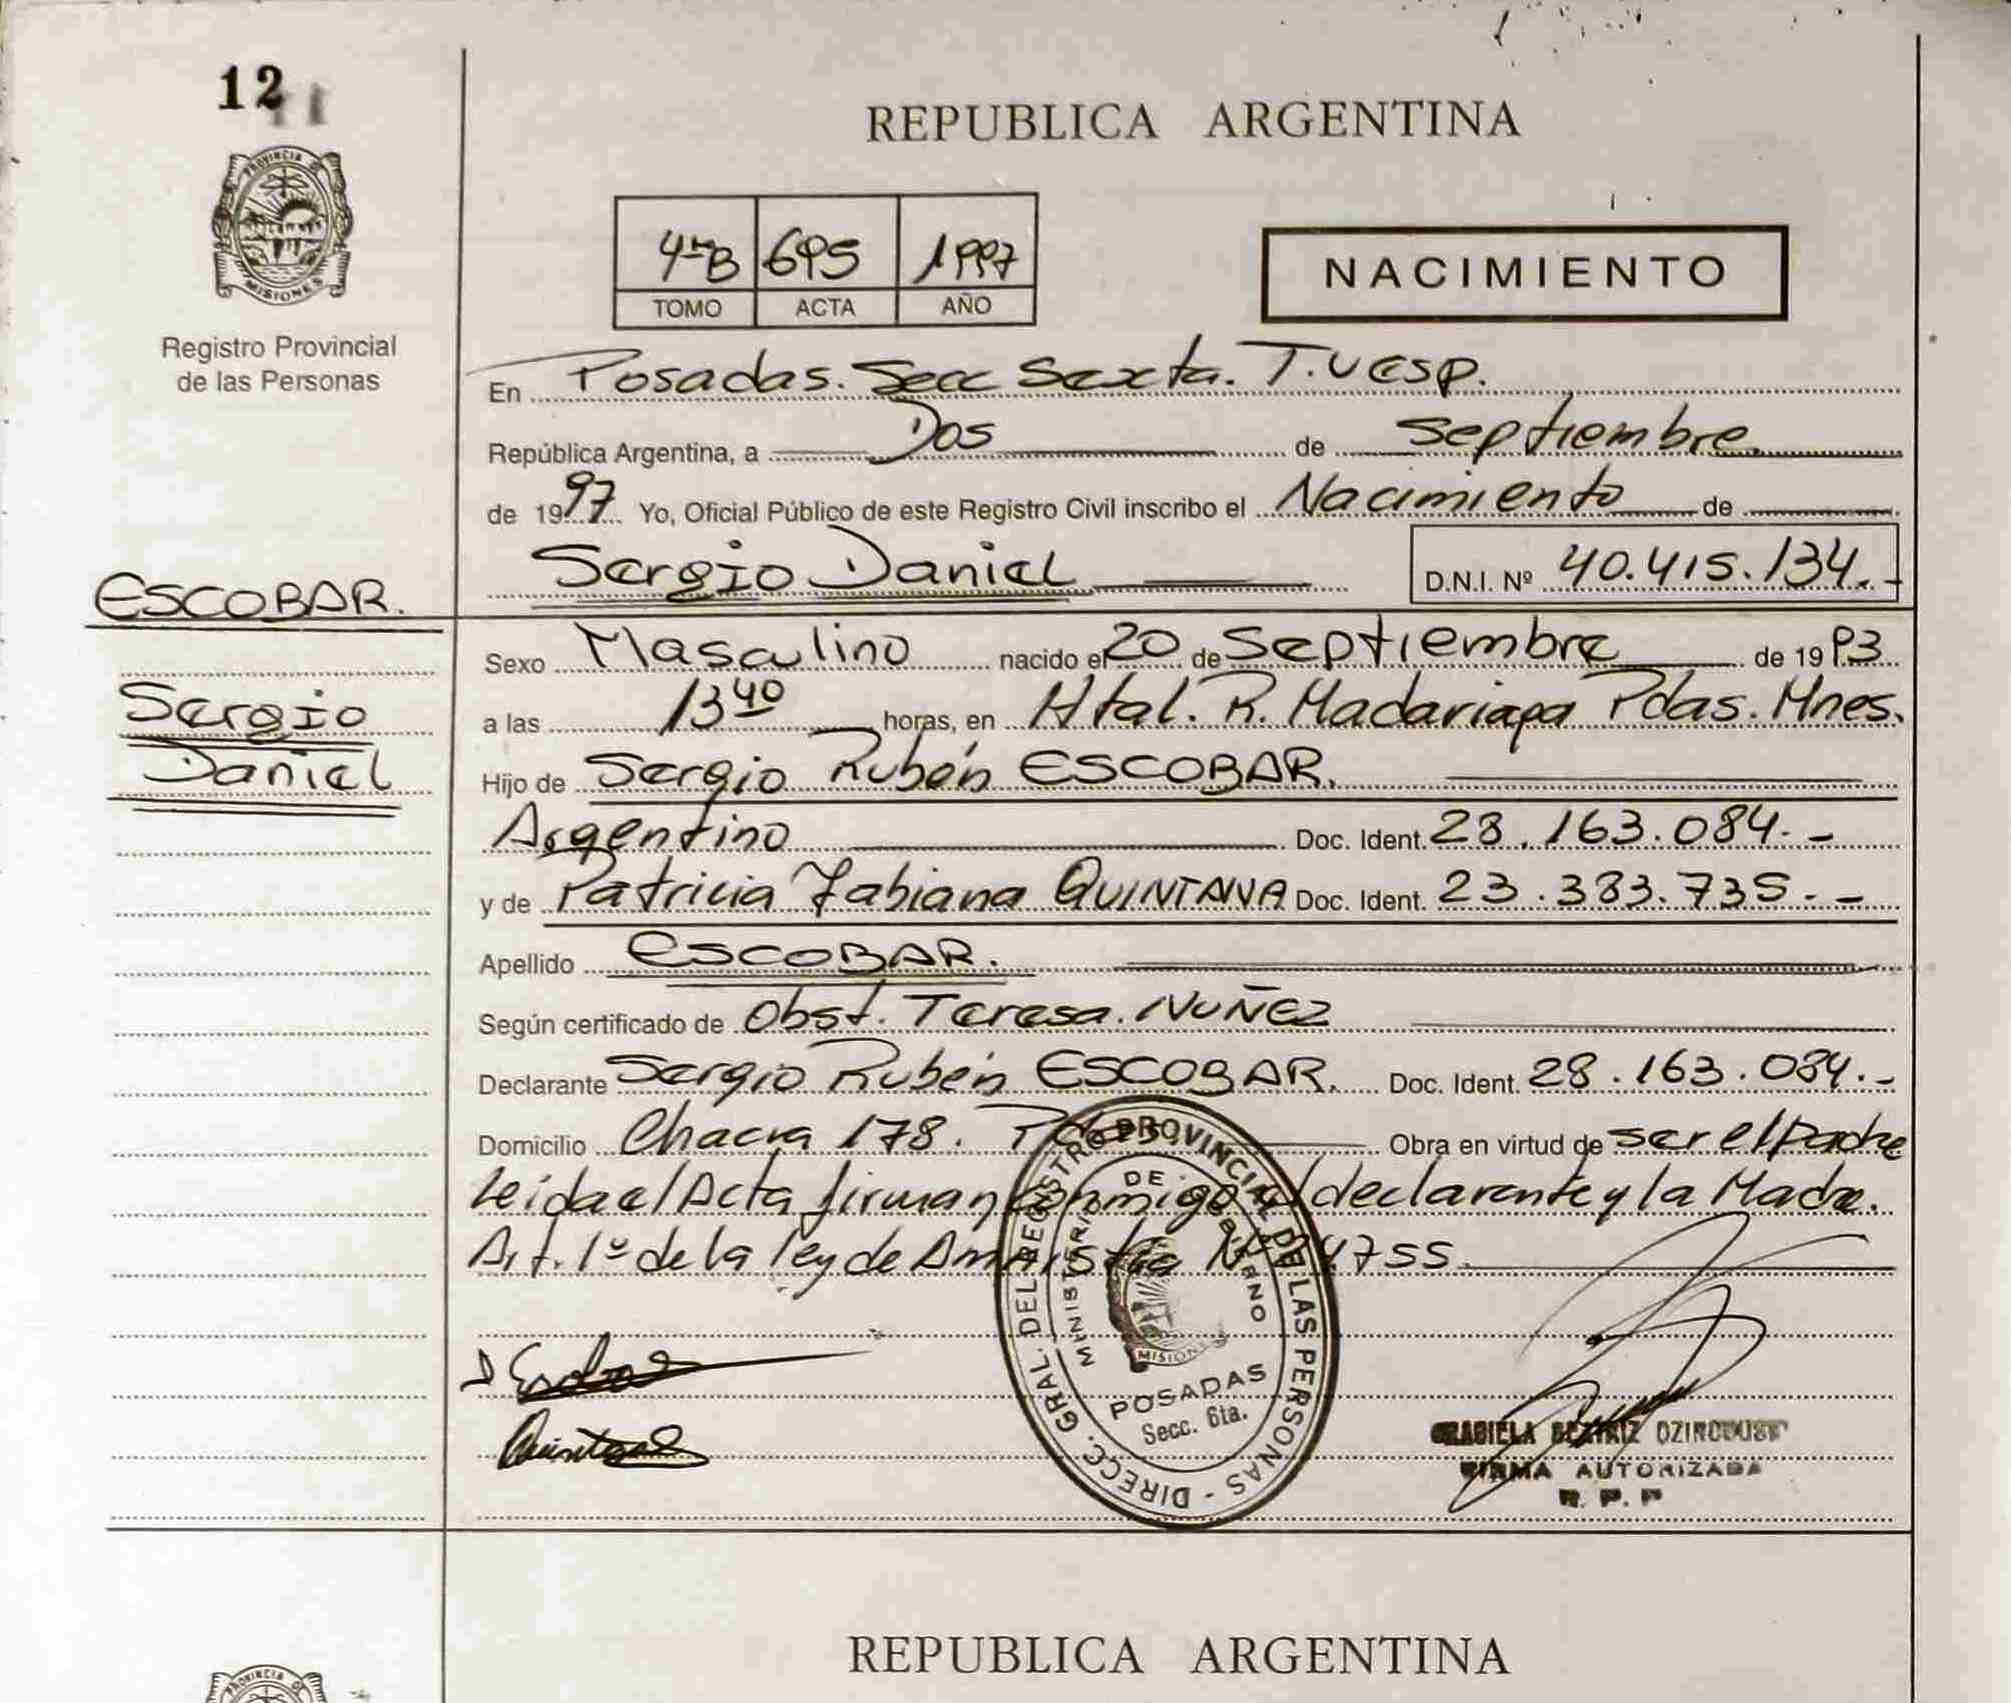 12
PROVINCIA DE
MISIONES
Registro Provincial
de las Personas
REPUBLICA ARGENTINA
695 1997
TOMO ACTA AÑO
NACIMIENTO
En Posadas. Secc Sexta. T.
República Argentina, a Dos de Septiembre
de 1997 Yo, Oficial Público de este Registro Civil inscribo el Nacimiento de
Sergio Daniel D.N.I. Nº 40.415.134.-
ESCOBAR.
Sergio
Daniel
Sexo Masculino nacido el 20 de Septiembre de 1993
a las 13 40 horas, en Htal. R. Madariaga Pdas. Mnes.
Hijo de Sergio Rubén ESCOBAR.
Argentino Doc. Ident. 28.163.084.-
y de Patricia Fabiana QUINTANA Doc. Ident. 23.383.735.-
Apellido ESCOBAR.
Según certificado de Obst. Teresa. NUÑEZ
Declarante Sergio Rubén ESCOBAR. Doc. Ident. 28.163.084.-
Domicilio Chacra 178. Pdas. Obra en virtud de ser el padre
Leida el Acta firman conmigo el declarante y la Madre.
Art. 1º de la ley de Amnistia Nº 24755.
DIREC. GRAL. DEL REGISTRO PROVINCIAL DE LAS PERSONAS -
MINISTERIO DE GOBIERNO
MISIONES
POSADAS
Secc. 6ta.
Escobar
Quintana
GRACIELA BEATRIZ
FIRMA AUTORIZADA
R. P. P
REPUBLICA ARGENTINA
PROVINCIA DE